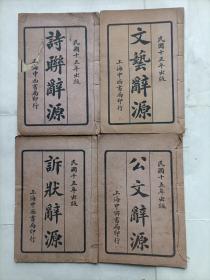 民國十五年出版
文藝辭源
上海中西書局印行
民國十五年出版
詩聯辭源
上海中西書局印行
民國十五年出版
公文辭源
上海中西書局印行
民國十五年出版
訴狀辭源
上海中西書局印行